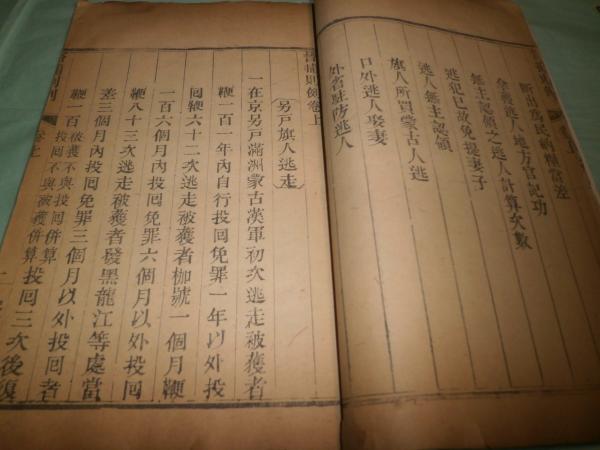 斷出爲民納糧當差
拿獲逃人地方官記功
無主認領之逃人計算次數
逃犯已故免提妻子
逃人無主認領
旗人所買蒙古人逃
口外逃人娶妻
外省駐防逃人
督捕則例卷上
另戶旗人逃走
一在京另戶滿洲蒙古漢軍初次逃走被獲者
鞭一百一年內自行投囘免罪一年以外投
囘鞭六十二次逃走被獲者枷號一個月鞭
一百六個月內投囘免罪六個月以外投囘
鞭八十三次逃走被獲者發黑龍江等處當
差三個月內投囘免罪三個月以外投囘者
鞭一百被獲不與投囘併算投囘不與被獲併算投囘三次後復
卷上